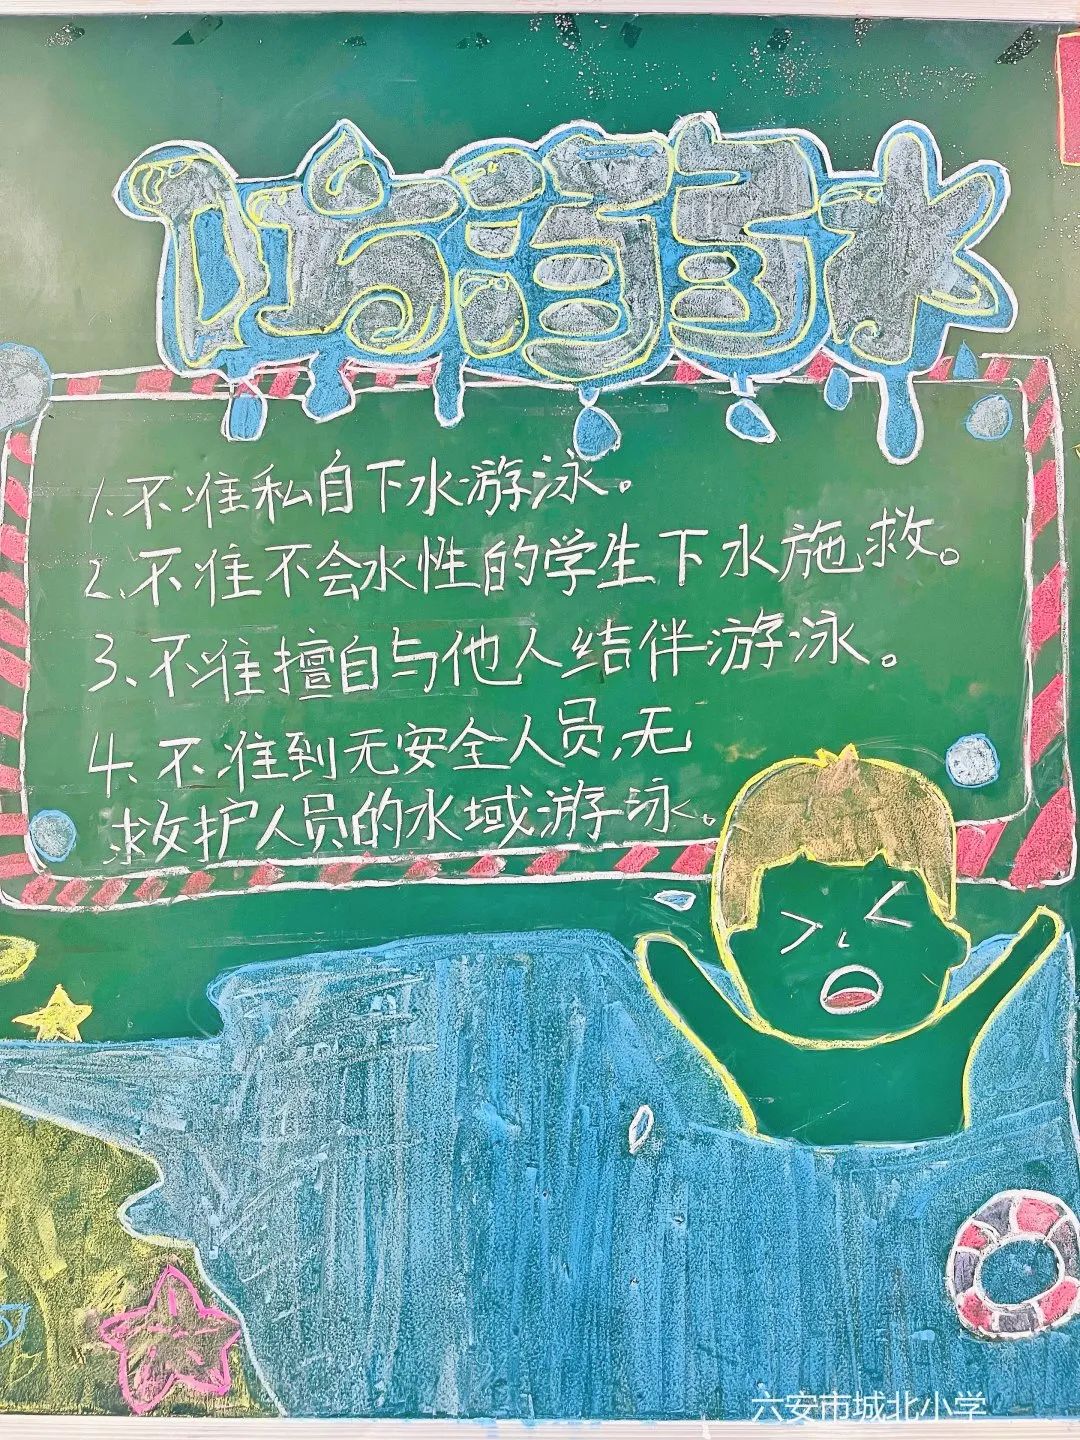 防溺水
1.不准私自下水游泳。
2、不准不会水性的学生下水施救。
3、不准擅自与他人结伴游泳。
4、不准到无安全人员,无
救护人员的水域游泳。
六安市城北小学